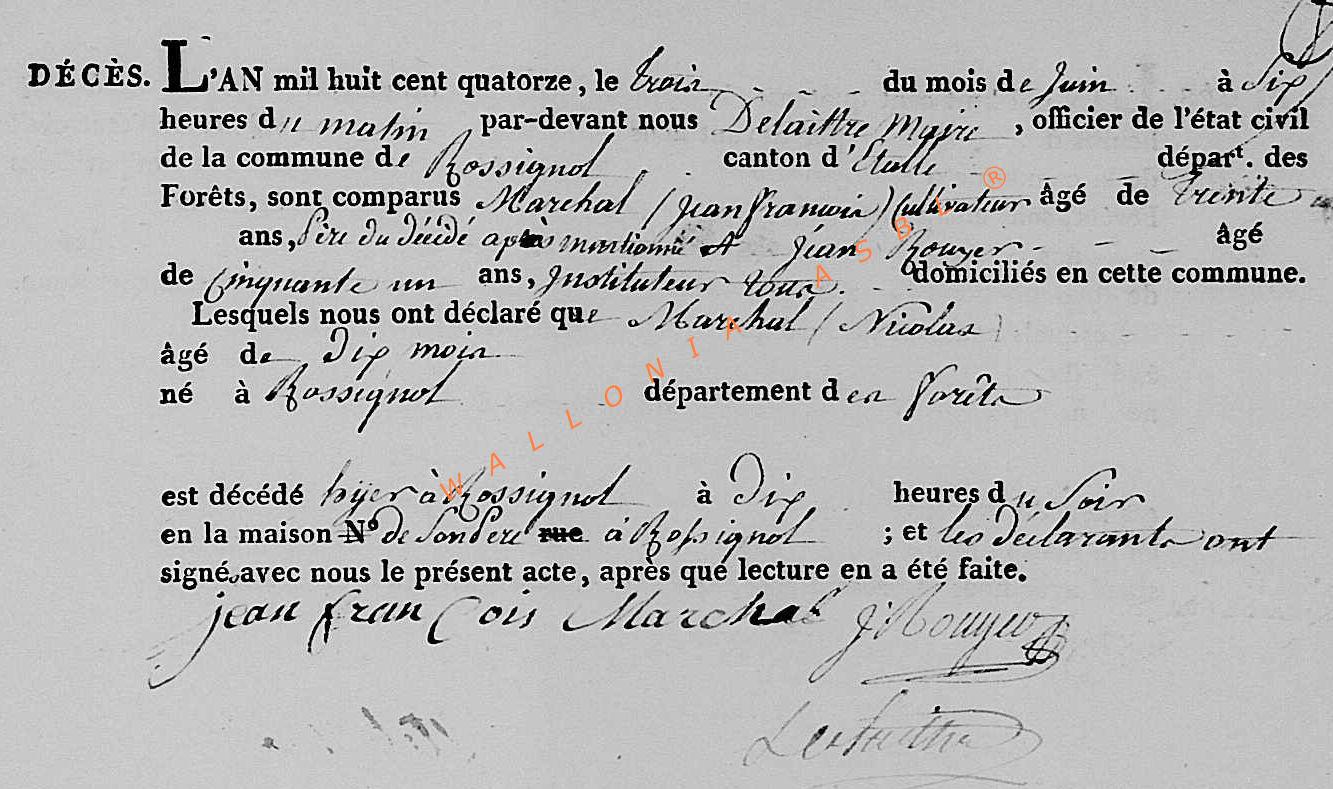 DÉCÈS. L'AN mil huit cent quatorze, le trois du mois de Juin à Six
heures du matin par-devant nous Delaittre Maire, officier de l'état civil
de la commune de Rossignol canton d'Etalle départ. des
Forêts, sont comparus Marchal (Jean francois) Cultivateur âgé de trente
ans, Père du décédé après mentionné et Jean Rouyer âgé
de Cinquante un ans, Instituteur tous domiciliés en cette commune.
Lesquels nous ont déclaré que Marchal (Nicolas)
âgé de Dix mois
né à Rossignol département des Forêts
est décédé hyer à Rossignol à Dix heures du Soir
en la maison N° de Son Pere rue à Rossignol ; et les déclarants ont
signé avec nous le présent acte, après que lecture en a été faite.
jean françois Marchal J Rouyer
WALLONIA ASBL ®